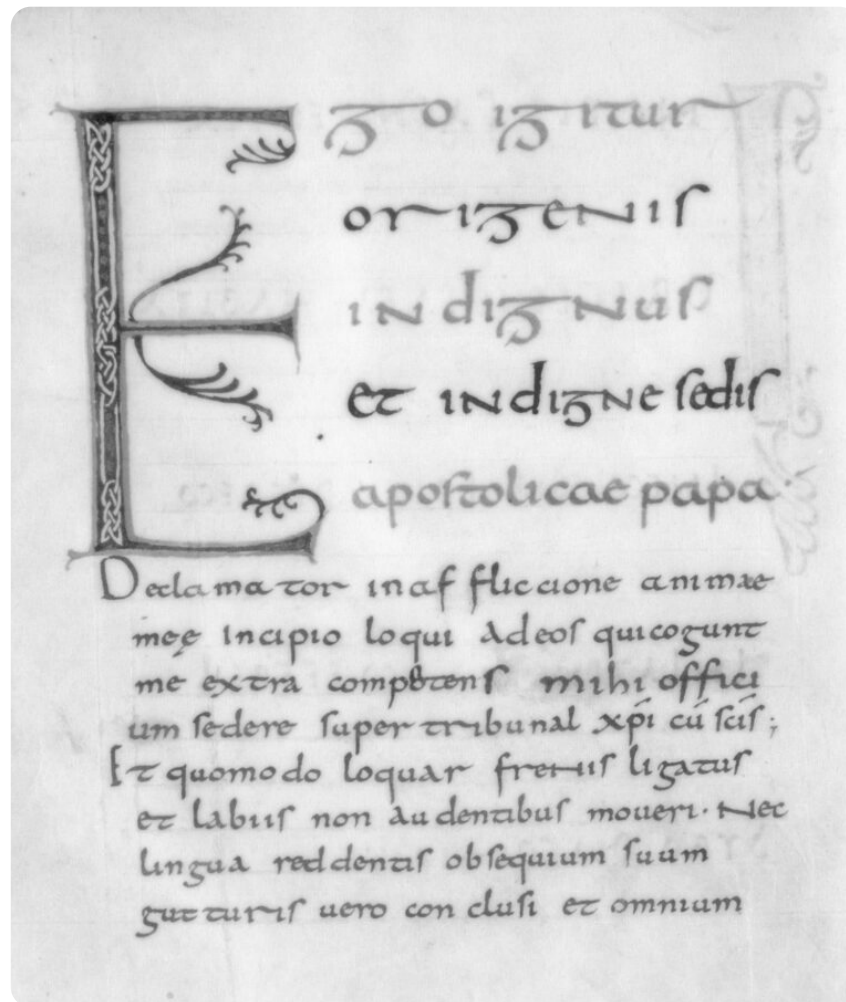 Ego igitur
origenis
indignus
et indigne sedis
apostolicae papa·
Declamator inaf fliccione animae
meę incipio loqui adeos quicogunt
mé extra compotens mihi offici
um sedere super tribunal xp̄i cū sc̄is;
Et quomodo loquar frenis ligatus
et labiis non audentibus moveri· Nec
lingua reddentis obsequium suum
gutturis uero conclusi et omnium